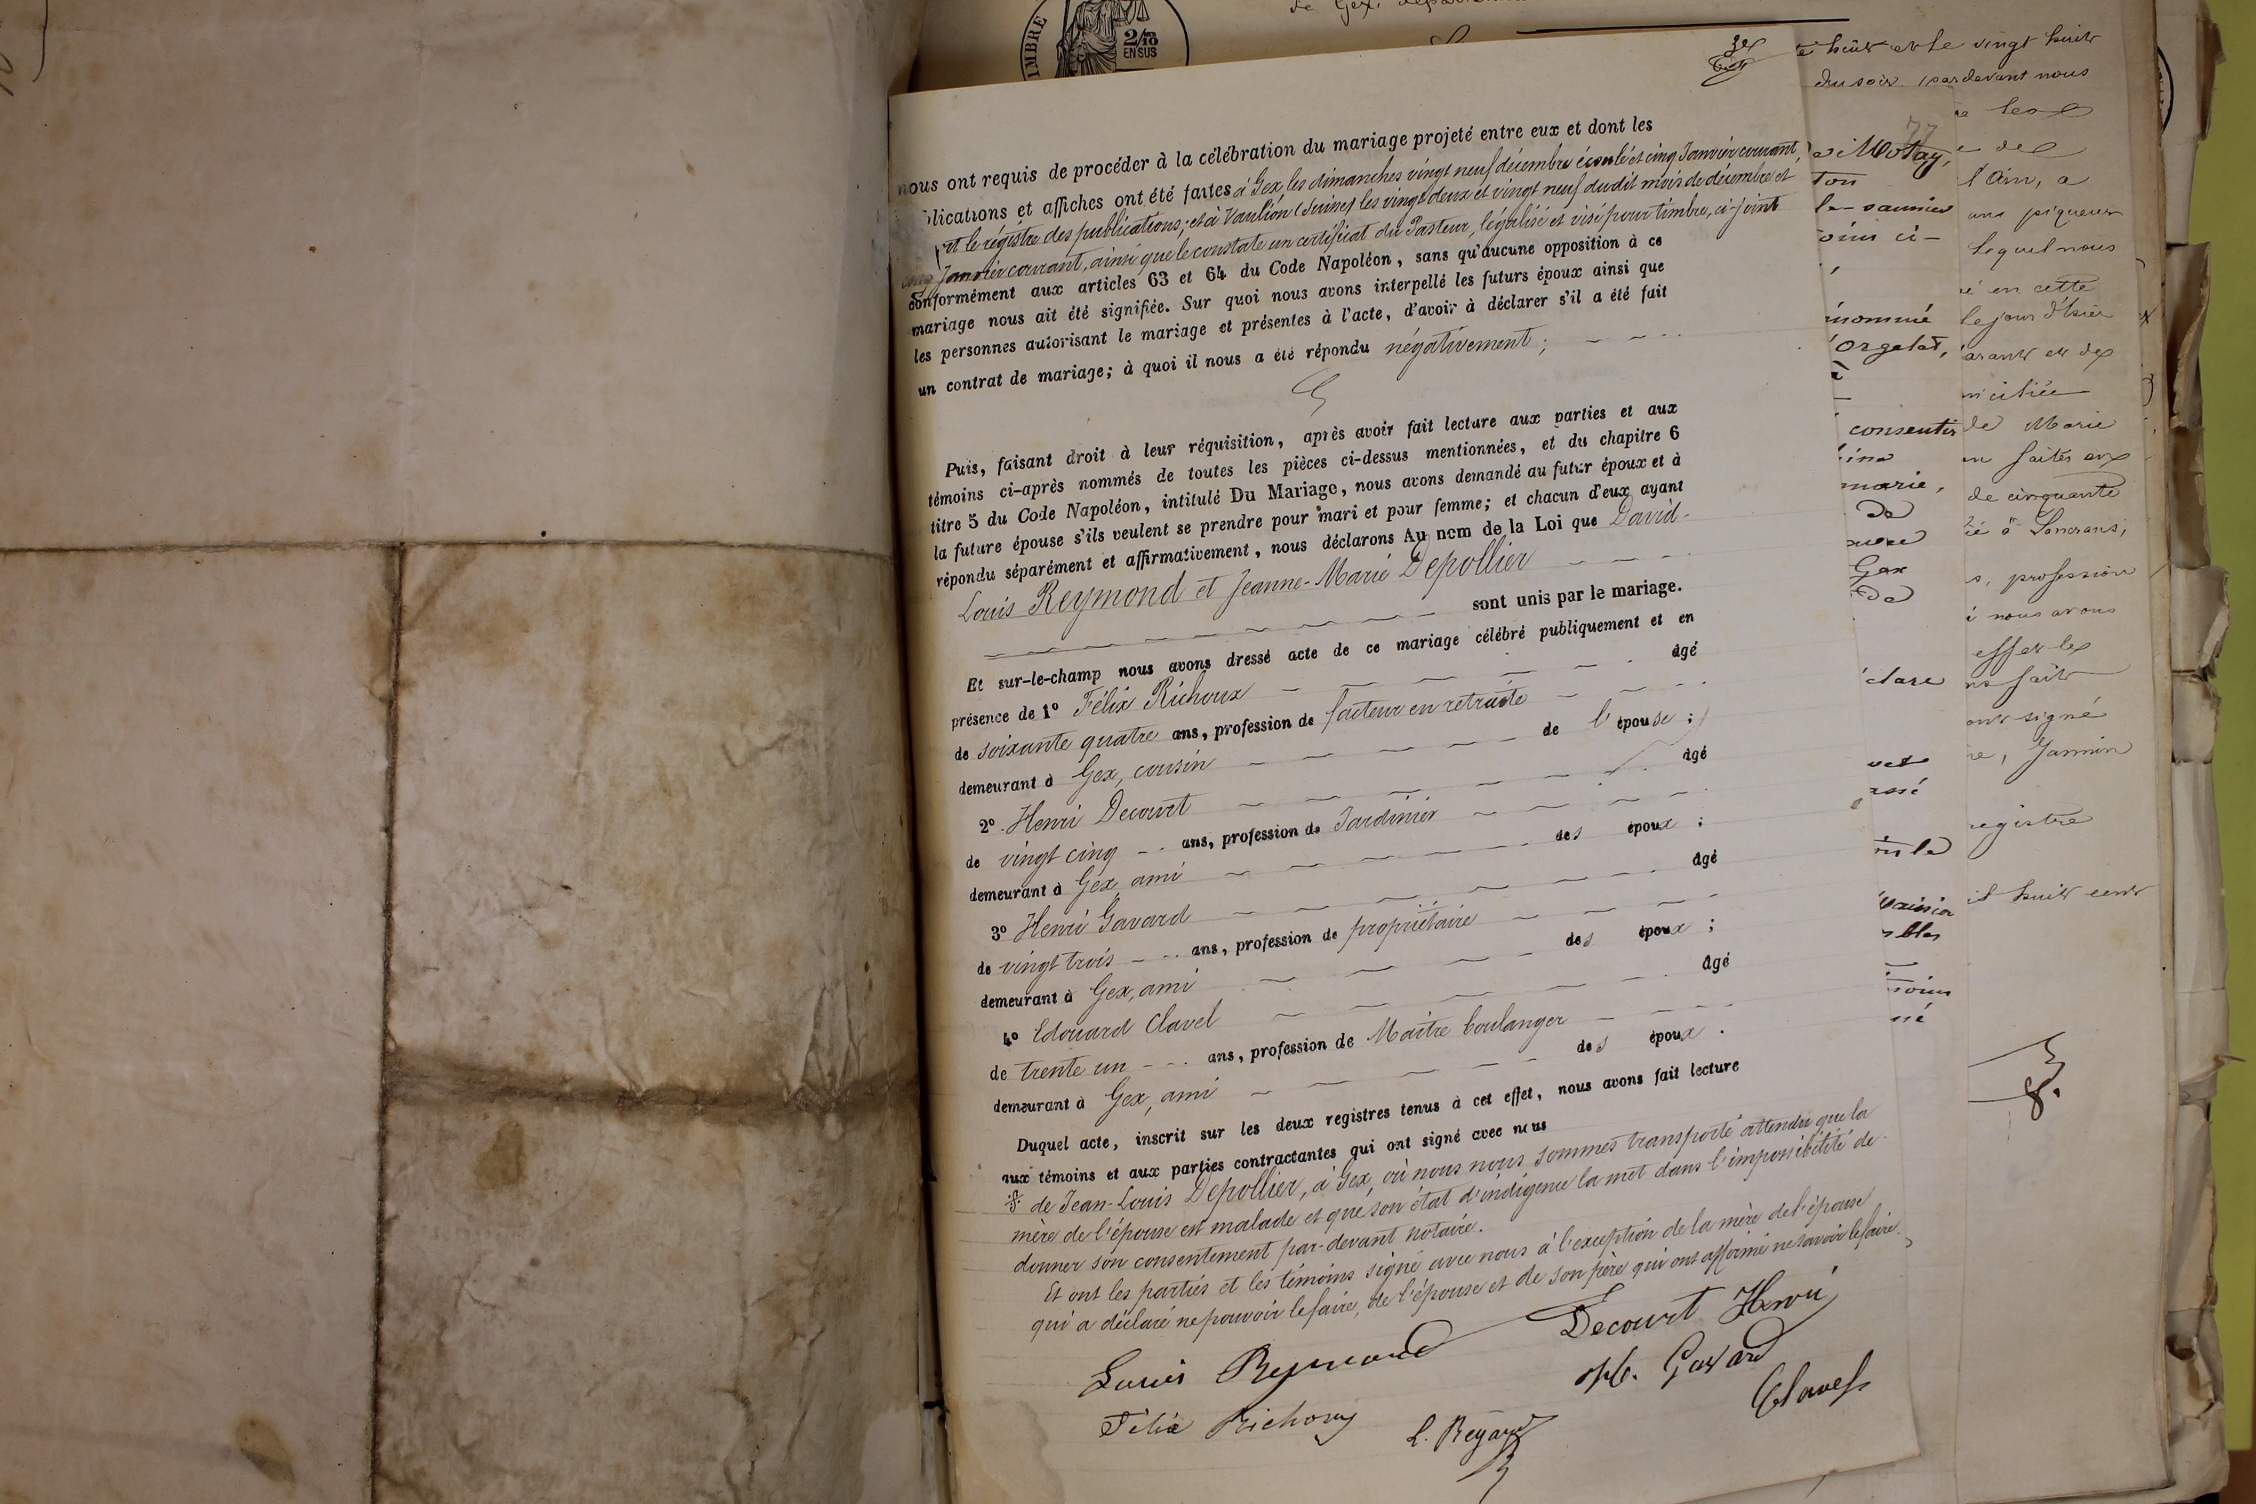 de Gex,
TIMBRE
2/10
EN SUS
3e
nous ont requis de procéder à la célébration du mariage projeté entre eux et dont les
publications et affiches ont été faites à Gex les dimanches vingt neuf décembre écoulé et cinq Janvier courant,
et le régistre des publications; et à Vaulion (Suisse) les vingt deux et vingt neuf dudit mois de décembre et
cinq Janvier courant, ainsi que le constate un certificat du Pasteur, légalisé et visé pour timbre, ci-joint
conformément aux articles 63 et 64 du Code Napoléon, sans qu'aucune opposition à ce
mariage nous ait été signifiée. Sur quoi nous avons interpellé les futurs époux ainsi que
les personnes autorisant le mariage et présentes à l'acte, d'avoir à déclarer s'il a été fait
un contrat de mariage; à quoi il nous a été répondu négativement;
Puis, faisant droit à leur réquisition, après avoir fait lecture aux parties et aux
témoins ci-après nommés de toutes les pièces ci-dessus mentionnées, et du chapitre 6
titre 5 du Code Napoléon, intitulé Du Mariage, nous avons demandé au futur époux et à
la future épouse s'ils veulent se prendre pour mari et pour femme; et chacun d'eux ayant
répondu séparément et affirmativement, nous déclarons Au nom de la Loi que David-
Louis Reymond et Jeanne-Marie Depollier
sont unis par le mariage.
Et sur-le-champ nous avons dressé acte de ce mariage célébré publiquement et en
présence de 1º Félix Richoux âgé
de soixante quatre ans, profession de facteur en retraite
demeurant à Gex, cousin de l'épouse;
2º Henri Decourt âgé
de vingt cinq ans, profession de Jardinier
demeurant à Gex, ami des époux;
3º Henri Gavard âgé
de vingt trois ans, profession de propriétaire
demeurant à Gex, ami des époux;
4º Edouard Clavel âgé
de trente un ans, profession de Maître boulanger
demeurant à Gex, ami des époux.
Duquel acte, inscrit sur les deux registres tenus à cet effet, nous avons fait lecture
aux témoins et aux parties contractantes qui ont signé avec nous
de Jean-Louis Depollier, à Gex, où nous nous sommes transporté attendu que la
mère de l'épouse est malade et que son état d'indigence la met dans l'impossibilité de
donner son consentement par-devant notaire.
Et ont les parties et les témoins signé avec nous à l'exception de la mère de l'épouse
qui a déclaré ne pouvoir le faire, de l'épouse et de son père qui ont affirmé ne savoir le faire.
Louis Reymond
Decourt Henri
Félix Richoux
H. Gavard
Clavel
77
consentir
marie,
De
Gex
De
vingt huit
du soir, pardevant nous
l'Ain, a
ans piqueur
lequel nous
en cette
le jour d'hier
de Marie
de cinquante
profession
nous avons
effet les
signé
registre
huit cent